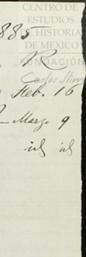 CENTRO DE
ESTUDIOS
DE HISTORIA
DE MEXICO
FUNDACIÓN
Carlos Slim
1835
R
Feb. 16
Marzo 9
id id